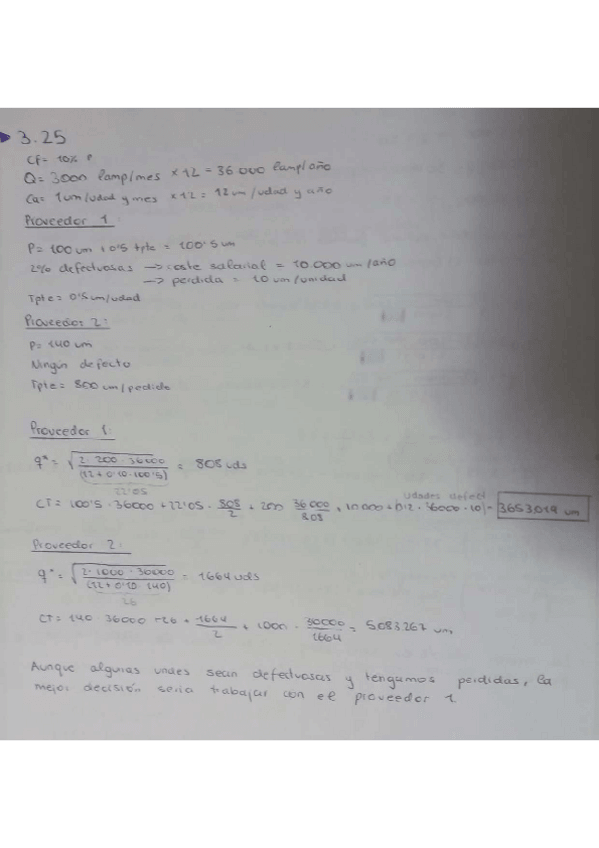 3.25
CF= 10% P
Q= 3000 lamp/mes ×12 = 36.000 lamp/año
Ca= 1um/udad y mes ×12 = 12 um/udad y año
Proveedor 1
P= 100 um + 0'5 tpte = 100'5 um
2% defectuosas → coste salarial = 10.000 um/año
→ perdida = 10 um/unidad
Tpte = 0'5 um/udad
Proveedor 2:
P= 140 um
Ningún defecto
Tpte = 800 um/pedido
Proveedor 1:
q* = √(2·200·36000 / (12+0'10·100'5)) = 808 uds
22'05
udades defect
CT= 100'5 · 36000 + 22'05 · 808/2 + 200 36000/808 + 10000 + 0'2 · 36000 · 10 = 3653.019 um
Proveedor 2:
q* = √(2·1000·36000 / (12+0'10·140)) = 1664 uds
26
CT= 140 · 36000 + 26 + 1664/2 + 1000 · 36000/1664 = 5083.267 um
Aunque algunas undes sean defectuosas y tengamos perdidas, la
mejor decisión seria trabajar con el proveedor 1.